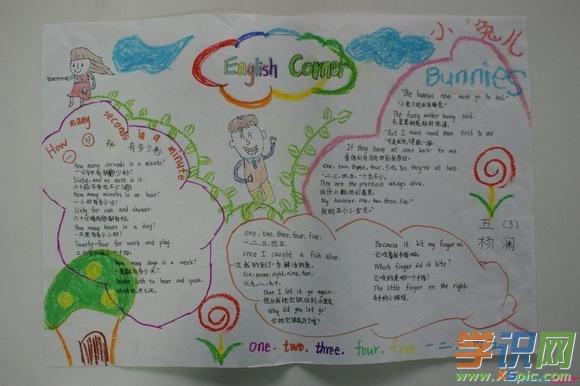 English Corner
小兔儿
Bunnies
"The bunnies now must go to bed."
The furry mother bunny said.
"But I must count them first to see
If they have all come back to me.
One, two, three, four, five, yes, they're all here.
"一、二、三、四、五、一个也不少。
They are the prettiest things alive.
My bunnies, one, two, three, four, five."
我的五个小宝贝。"
How many seconds in a minute
一分
有多少秒
How many seconds in a minute?
Sixty, and no more in it.
How many minutes in an hour?
一小时有多少分?
Sixty for sun and shower.
How many hours in a day?
一天里有多少小时?
Twenty-four for work and play.
How many days in a week?
Seven both to hear and speak.
one, two, three, four, five.
一、二、三、四、五,
Once I caught a fish alive.
Six, seven, eight, nine, ten,
六、七、八、九、十,
Then I let it go again.
Why did you let go?
你把它放了吗?
Because it bit my finger so.
Which finger did it bite?
The little finger on the right.
五(3)
杨澜
one. two. three. four. five 一 二
学识网
www.XSpic.com